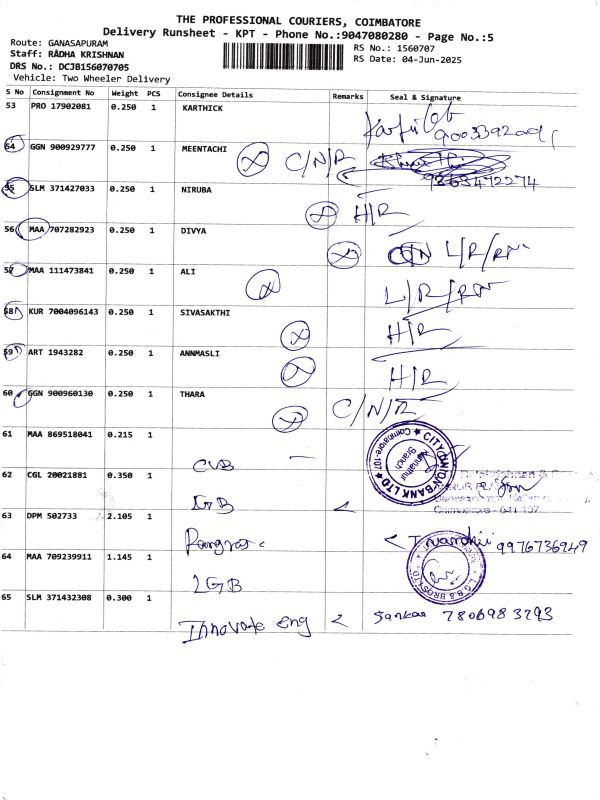 THE PROFESSIONAL COURIERS, COIMBATORE
Delivery Runsheet - KPT - Phone No.:9047080280 - Page No.:5
Route: GANASAPURAM
RS No.: 1560707
Staff: RÁDHA KRISHNAN
RS Date: 04-Jun-2025
DRS No.: DCJB156070705
Vehicle: Two Wheeler Delivery
S No Consignment No Weight PCS Consignee Details Remarks Seal & Signature
53 PRO 17902081 0.250 1 KARTHICK
54 GGN 900929777 0.250 1 MEENTACHI C/N/R
9363472274
55 SLM 371427033 0.250 1 NIRUBA H/R
56 MAA 707282923 0.250 1 DIVYA L/R/
57 MAA 111473841 0.250 1 ALI L/R/
58 KUR 7004096143 0.250 1 SIVASAKTHI H/R
59 ART 1943282 0.250 1 ANNMASLI H/R
60 GGN 900960130 0.250 1 THARA C/N/R
61 MAA 869518041 0.215 1 CUB
CITY UNION BANK LTD
Branch
Coimbatore-107
62 CGL 20021881 0.350 1 LGB
63 DPM 502733 2.105 1
9976736949
64 MAA 709239911 1.145 1 LGB
L.G.B & BROS LTD
65 SLM 371432308 0.300 1 Innovate eng < Sankar 7806983293